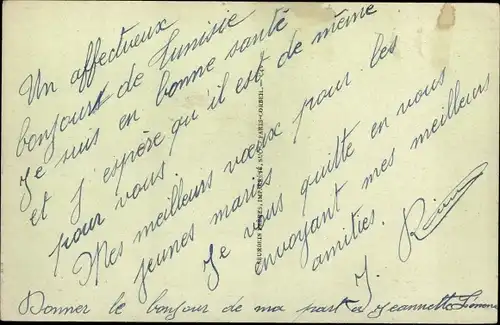 Un affectueux
bonjour de Tunisie
Je suis en bonne santé
et j'espère qu'il est de même
pour vous.
Mes meilleurs vœux pour les
jeunes mariés
Je vous quitte en vous
envoyant mes meilleurs
amitiés.
J.
Donner le bonjour de ma part à Jeannette